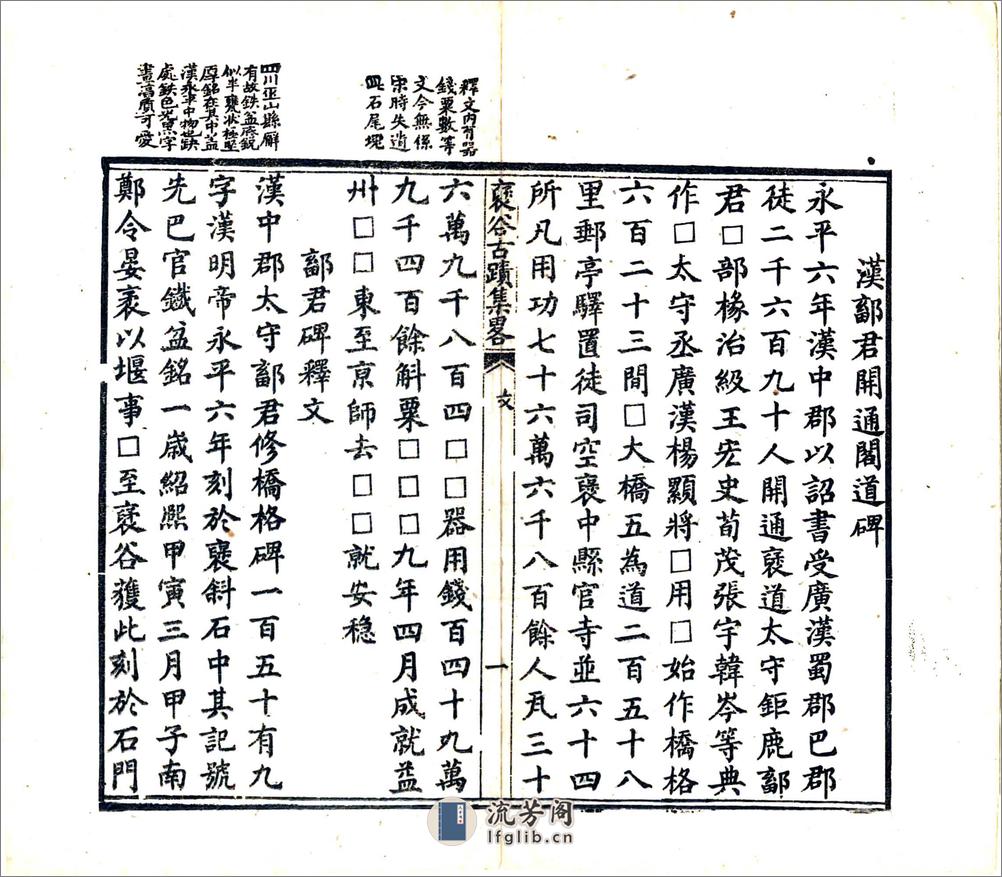 漢鄐君開通閣道碑
永平六年漢中郡以詔書受廣漢蜀郡巴郡
徒二千六百九十人開通褒道太守鉅鹿鄐
君□部掾治級王宏史荀茂張宇韓岑等典
作□太守丞廣漢楊顯將□用□始作橋格
六百二十三間□大橋五為道二百五十八
里郵亭驛置徒司空褒中縣官寺並六十四
所凡用功七十六萬六千八百餘人瓦三十
褒谷古蹟集畧
文
一
六萬九千八百四□□□器用錢百四十九萬
九千四百餘斛粟□□□九年四月成就益
州□□東至京師去□□□就安穩
鄐君碑釋文
漢中郡太守鄐君修橋格碑一百五十有九
字漢明帝永平六年刻於褒斜石中其記號
先巴官鐵盆銘一歲紹熙甲寅三月甲子南
鄭令晏袤以堰事□至褒谷獲此刻於石門
釋文內有器
錢粟數等
文今無係
宋時失逍
石尾境
四川巫山縣廨
有故鉄盆底銳
似半甕狀極堅
厚銘在其中蓋
漢永平中物也缺
處鉄色光黑字
畫高廣可愛
流芳阁
lfglib.cn